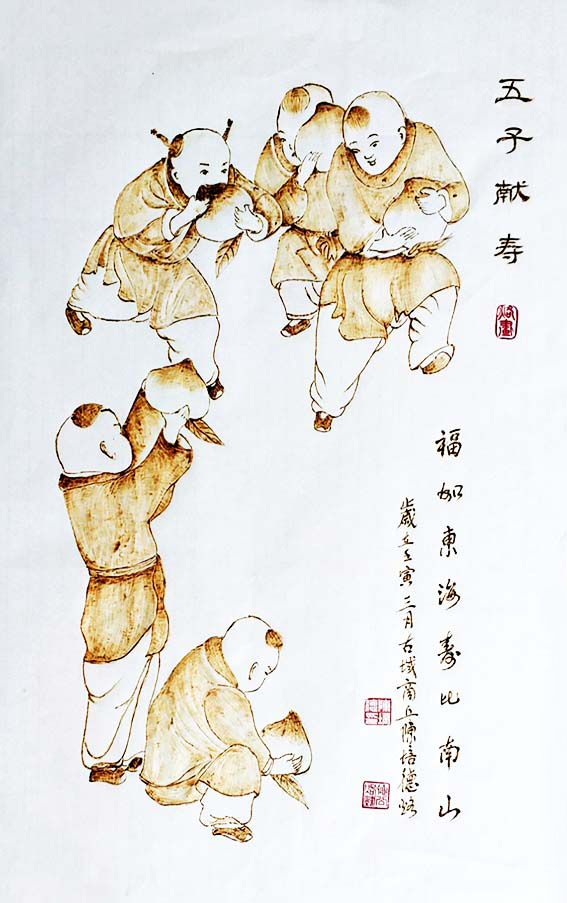 五子献寿
烙畫
福如東海壽比南山
歲在壬寅三月古城商丘陳培德烙